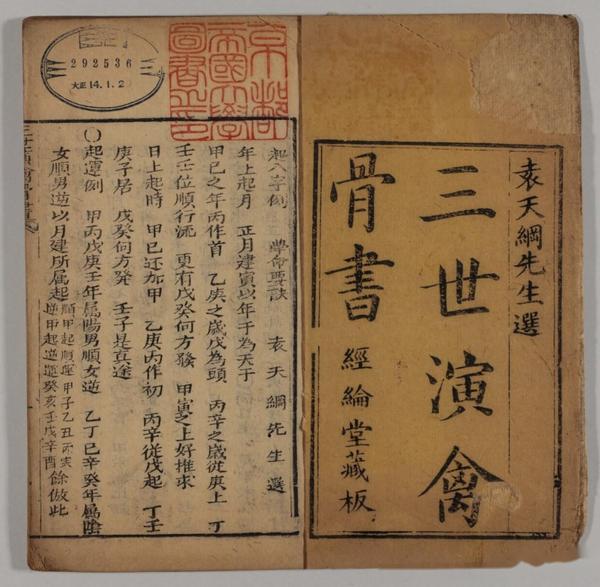 袁天綱先生選
三世演禽
骨書 經綸堂藏板
京都
帝國大學
圖書之印
292536
大正14.1.2
起八字例 學命要訣 袁天綱先生選
年上起月 正月建寅以年干為天干
甲已之年丙作首 乙庚之歲戊為頭 丙辛之歲從庚上 丁
壬壬位順行流 更有戊癸何方發 甲寅之上好推求
日上起時 甲已還加甲 乙庚丙作初 丙辛從戊起 丁壬
庚子居 戊癸何方發 壬子是真途
〇起運例 甲丙戊庚壬年屬陽男順女逆 乙丁已辛癸年屬陰
女順男逆以月建所屬起 順甲起順運甲子乙丑丙寅 逆甲起逆運癸亥壬戌辛酉 餘倣此